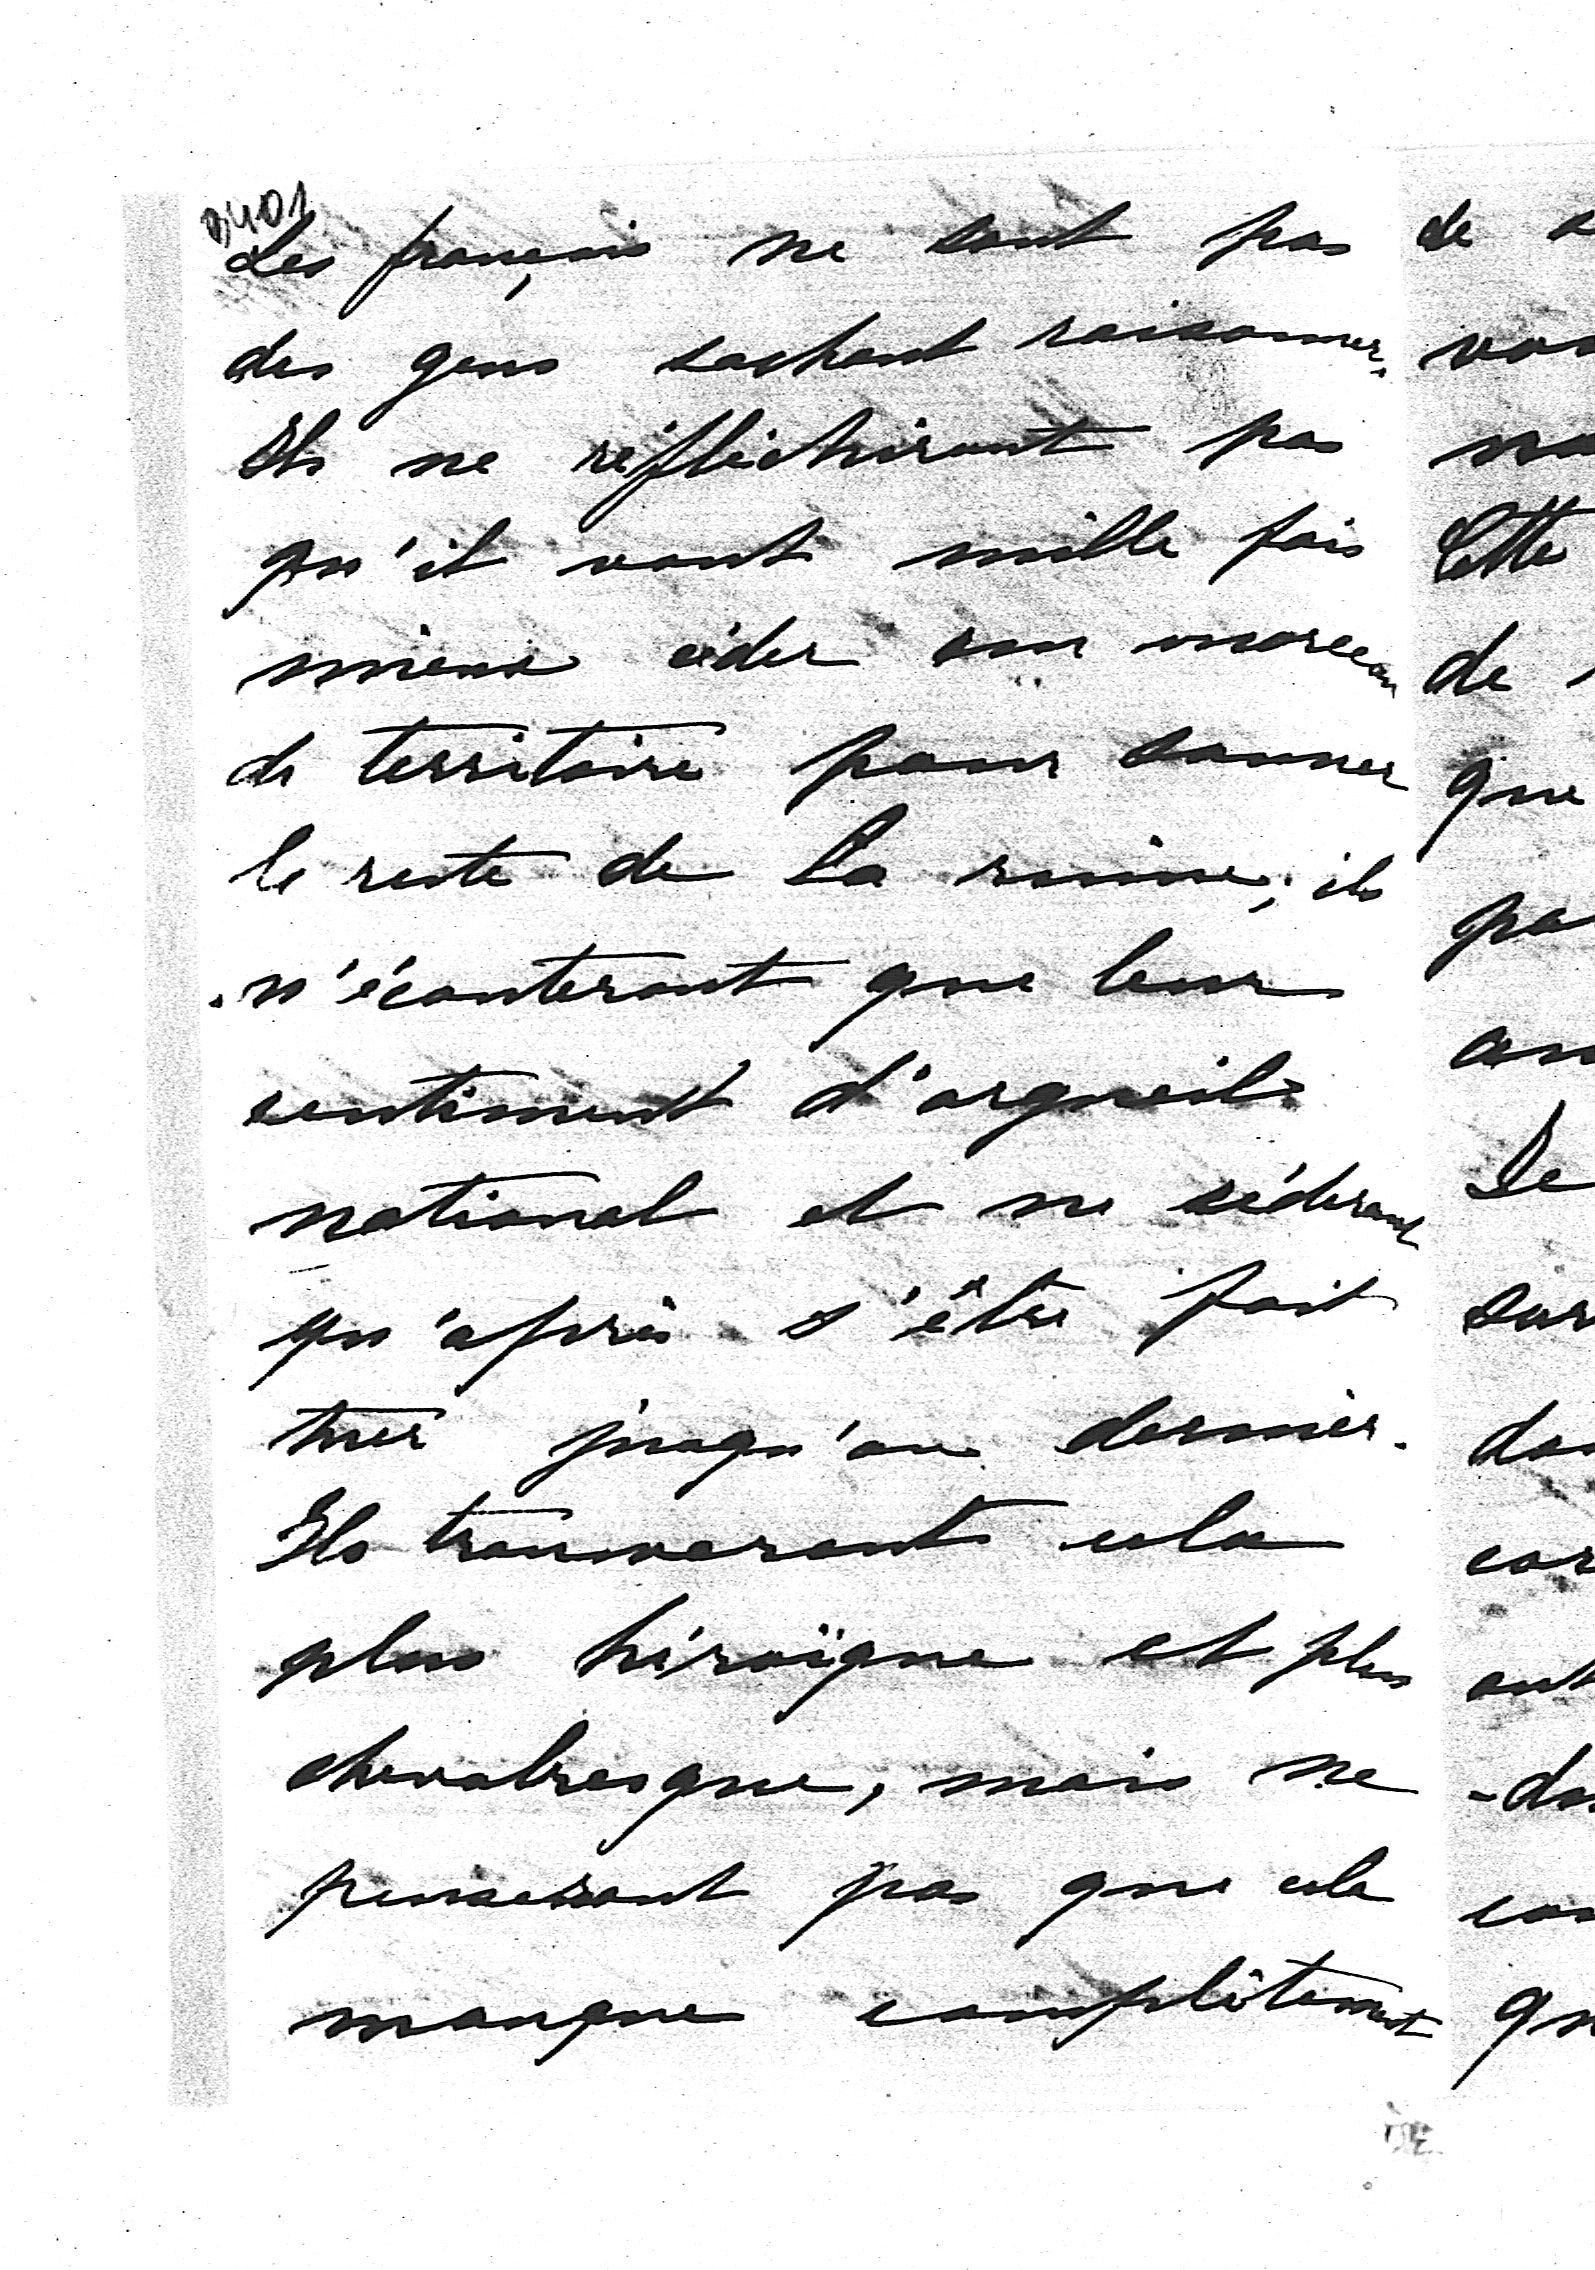 B401
Les français ne sont pas
des gens sachant raisonner.
Ils ne réfléchiront pas
qu'il vaut mille fois
mieux céder un morceau
de territoire pour sauver
le reste de la ruine, ils
n'écouteront que leur
sentiment d'orgueil
national et ne céderont
qu'après s'être fait
tuer jusqu'au dernier.
Ils trouveront cela
plus héroïque et plus
chevalresque, mais ne
penseront pas que cela
manque complètement
de
Cette
de
que